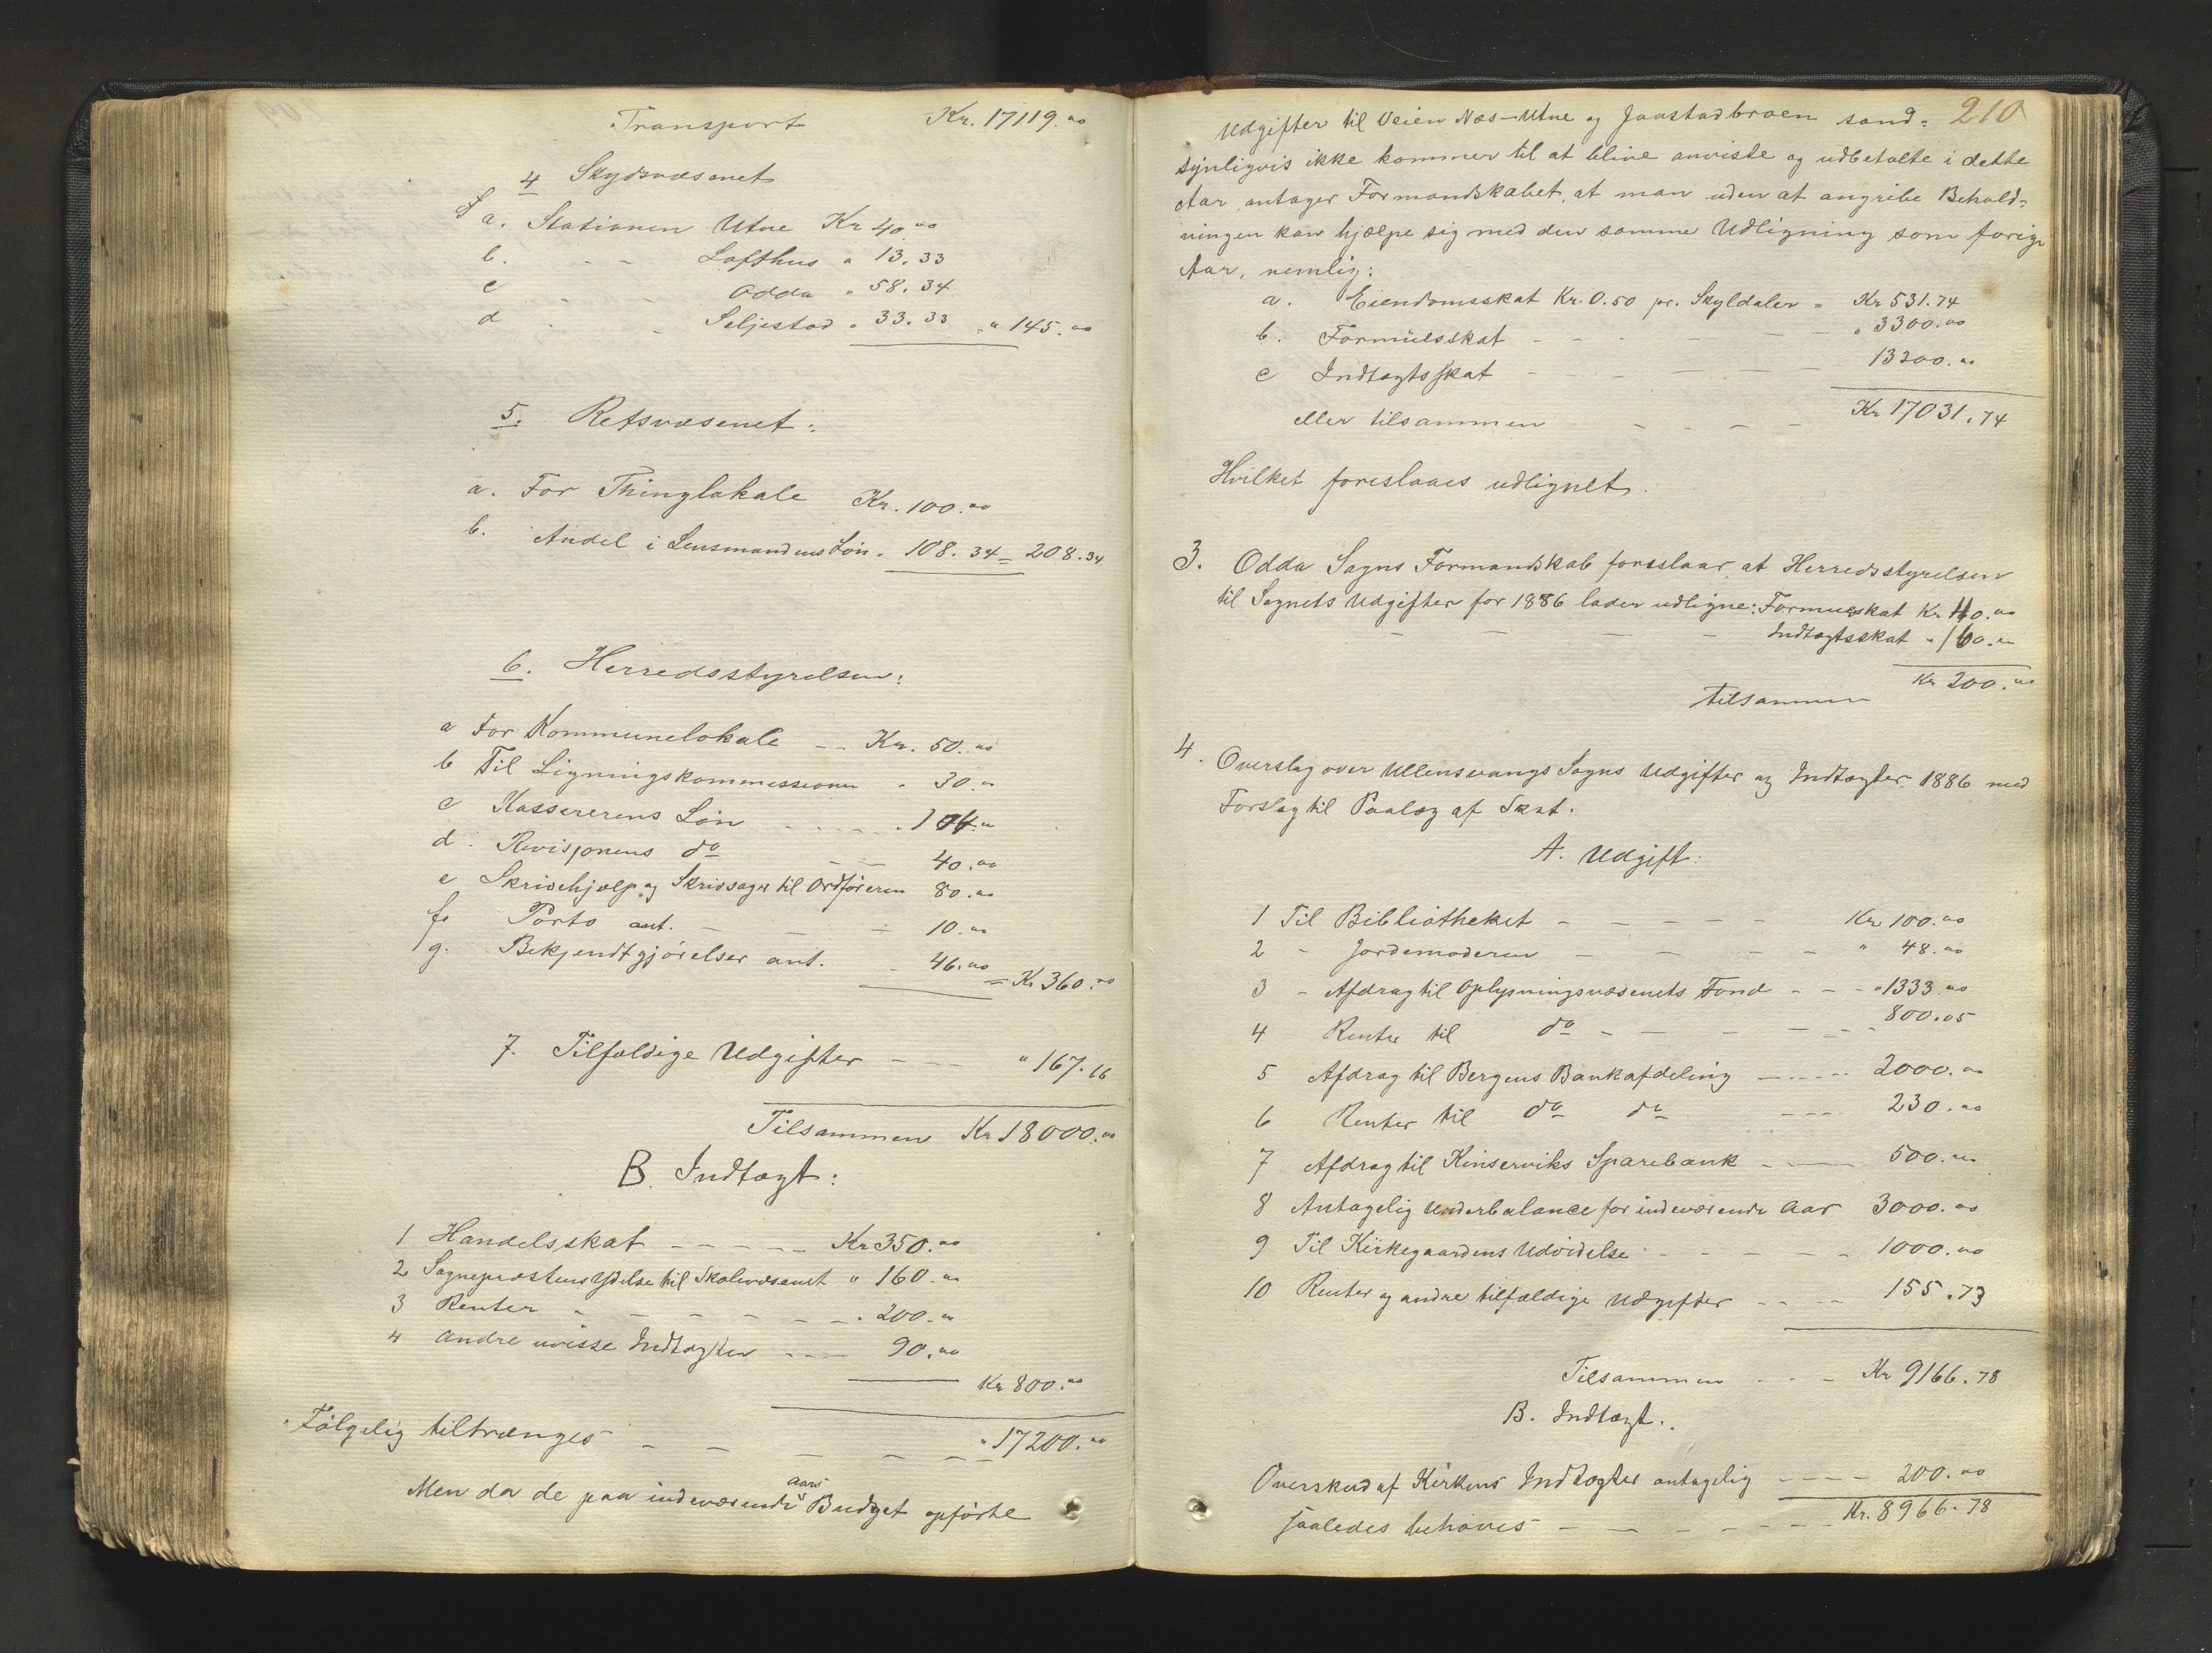 Transport Kr. 17119.00
4 Skydsvæsenet
a. Stationen Utne Kr 40.00
b. - - Lofthus " 13.33
c - - Odda " 58.34
d - - Seljestad " 33.33 = " 145.00
5. Retsvæsenet:
a. For Thinglokale Kr. 100.00
b. Andel i Lensmandens Løn. 108.34 = 208.34
6. Herredsstyrelsen:
a For Kommunelokale - - Kr. 50.00
b Til Ligningskommissionen " 30.00
c Kassererens Løn - - - - 104.00
d. Revisjonens do - - 40.00
e Skrivehjælp og Skrivsager til Ordføreren 80.00
f. Porto ant. - - - 10.00
g. Bekjendtgjørelser ant. - 46.00 = Kr 360.00
7. Tilfældige Udgifter - - - " 167.66
Tilsammen Kr 18000.00
B. Indtægt:
1 Handelsskat - - - - - Kr 350.00
2 Sognepræstens Ydelse til Skolevæsenet " 160.00
3 Renter - - - - - - " 200.00
4 Andre uvisse Indtægter - - - 90.00
Kr 800.00
Følgelig tiltrænges - - - - - - " 17200.00
Men da de paa indeværende Aars Budget opførte
210
Udgifter til Veien Næs-Utne og Jaastadbroen sand=
synligvis ikke kommer til at blive anviste og udbetalte i dette
Aar antager Formandskabet, at man uden at angribe Behold=
ningen kan hjælpe sig med den samme Udligning som forige
Aar, nemlig:
a. Eiendomsskat Kr. 0.50 pr. Skyldaler = Kr 531.74
b. Formuesskat - - - - - - " 3300.00
c Indtægtsskat - - - - - 13200.00
eller tilsammen - - - - Kr 17031.74
Hvilket foreslaaes udlignet.
3. Odda Sogns Formandskab foreslaar at Herredsstyrelsen
til Sognets Udgifter for 1886 lader udligne: Formueskat Kr 40.00
- - - - Indtægtsskat " 160.00
Tilsammen Kr 200.00
4. Overslag over Ullensvangs Sogns Udgifter og Indtægter 1886 med
Forslag til Paalæg af Skat.
A. Udgift:
1 Til Bibliotheket - - - - - Kr 100.00
2 - Jordemoderen - - - - - " 48.00
3 - Afdrag til Oplysningsvæsenets Fond - - - " 1333.00
4 Renter til do - - - - - - 800.05
5 Afdrag til Bergens Bankafdeling - - - - 2000.00
6 Renter til do do - - - - 230.00
7 Afdrag til Kinserviks Sparebank - - - 500.00
8 Antagelig Underbalance for indeværende Aar 3000.00
9 Til Kirkegaardens Udvidelse - - - - - 1000.00
10 Renter og andre tilfældige Udgifter - - - - 155.73
Tilsammen - - - Kr 9166.78
B. Indtægt.
Overskud af Kirkens Indtægter antagelig - - - - 200.00
saaledes behøves - - - - - - - Kr. 8966.78